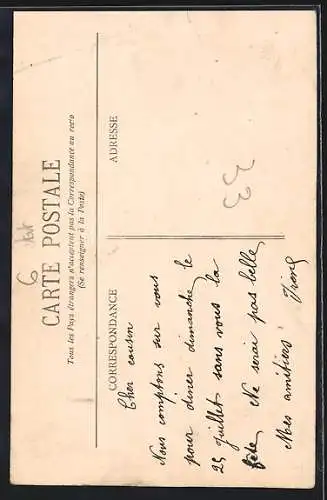 CARTE POSTALE
Tous les Pays étrangers n'acceptent pas la Correspondance au recto
(Se renseigner à la Poste)
CORRESPONDANCE
ADRESSE
Cher cousin
Nous comptons sur vous
pour diner dimanche le
25 juillet sans vous la
fête Ne serai pas belle
Mes amitiés